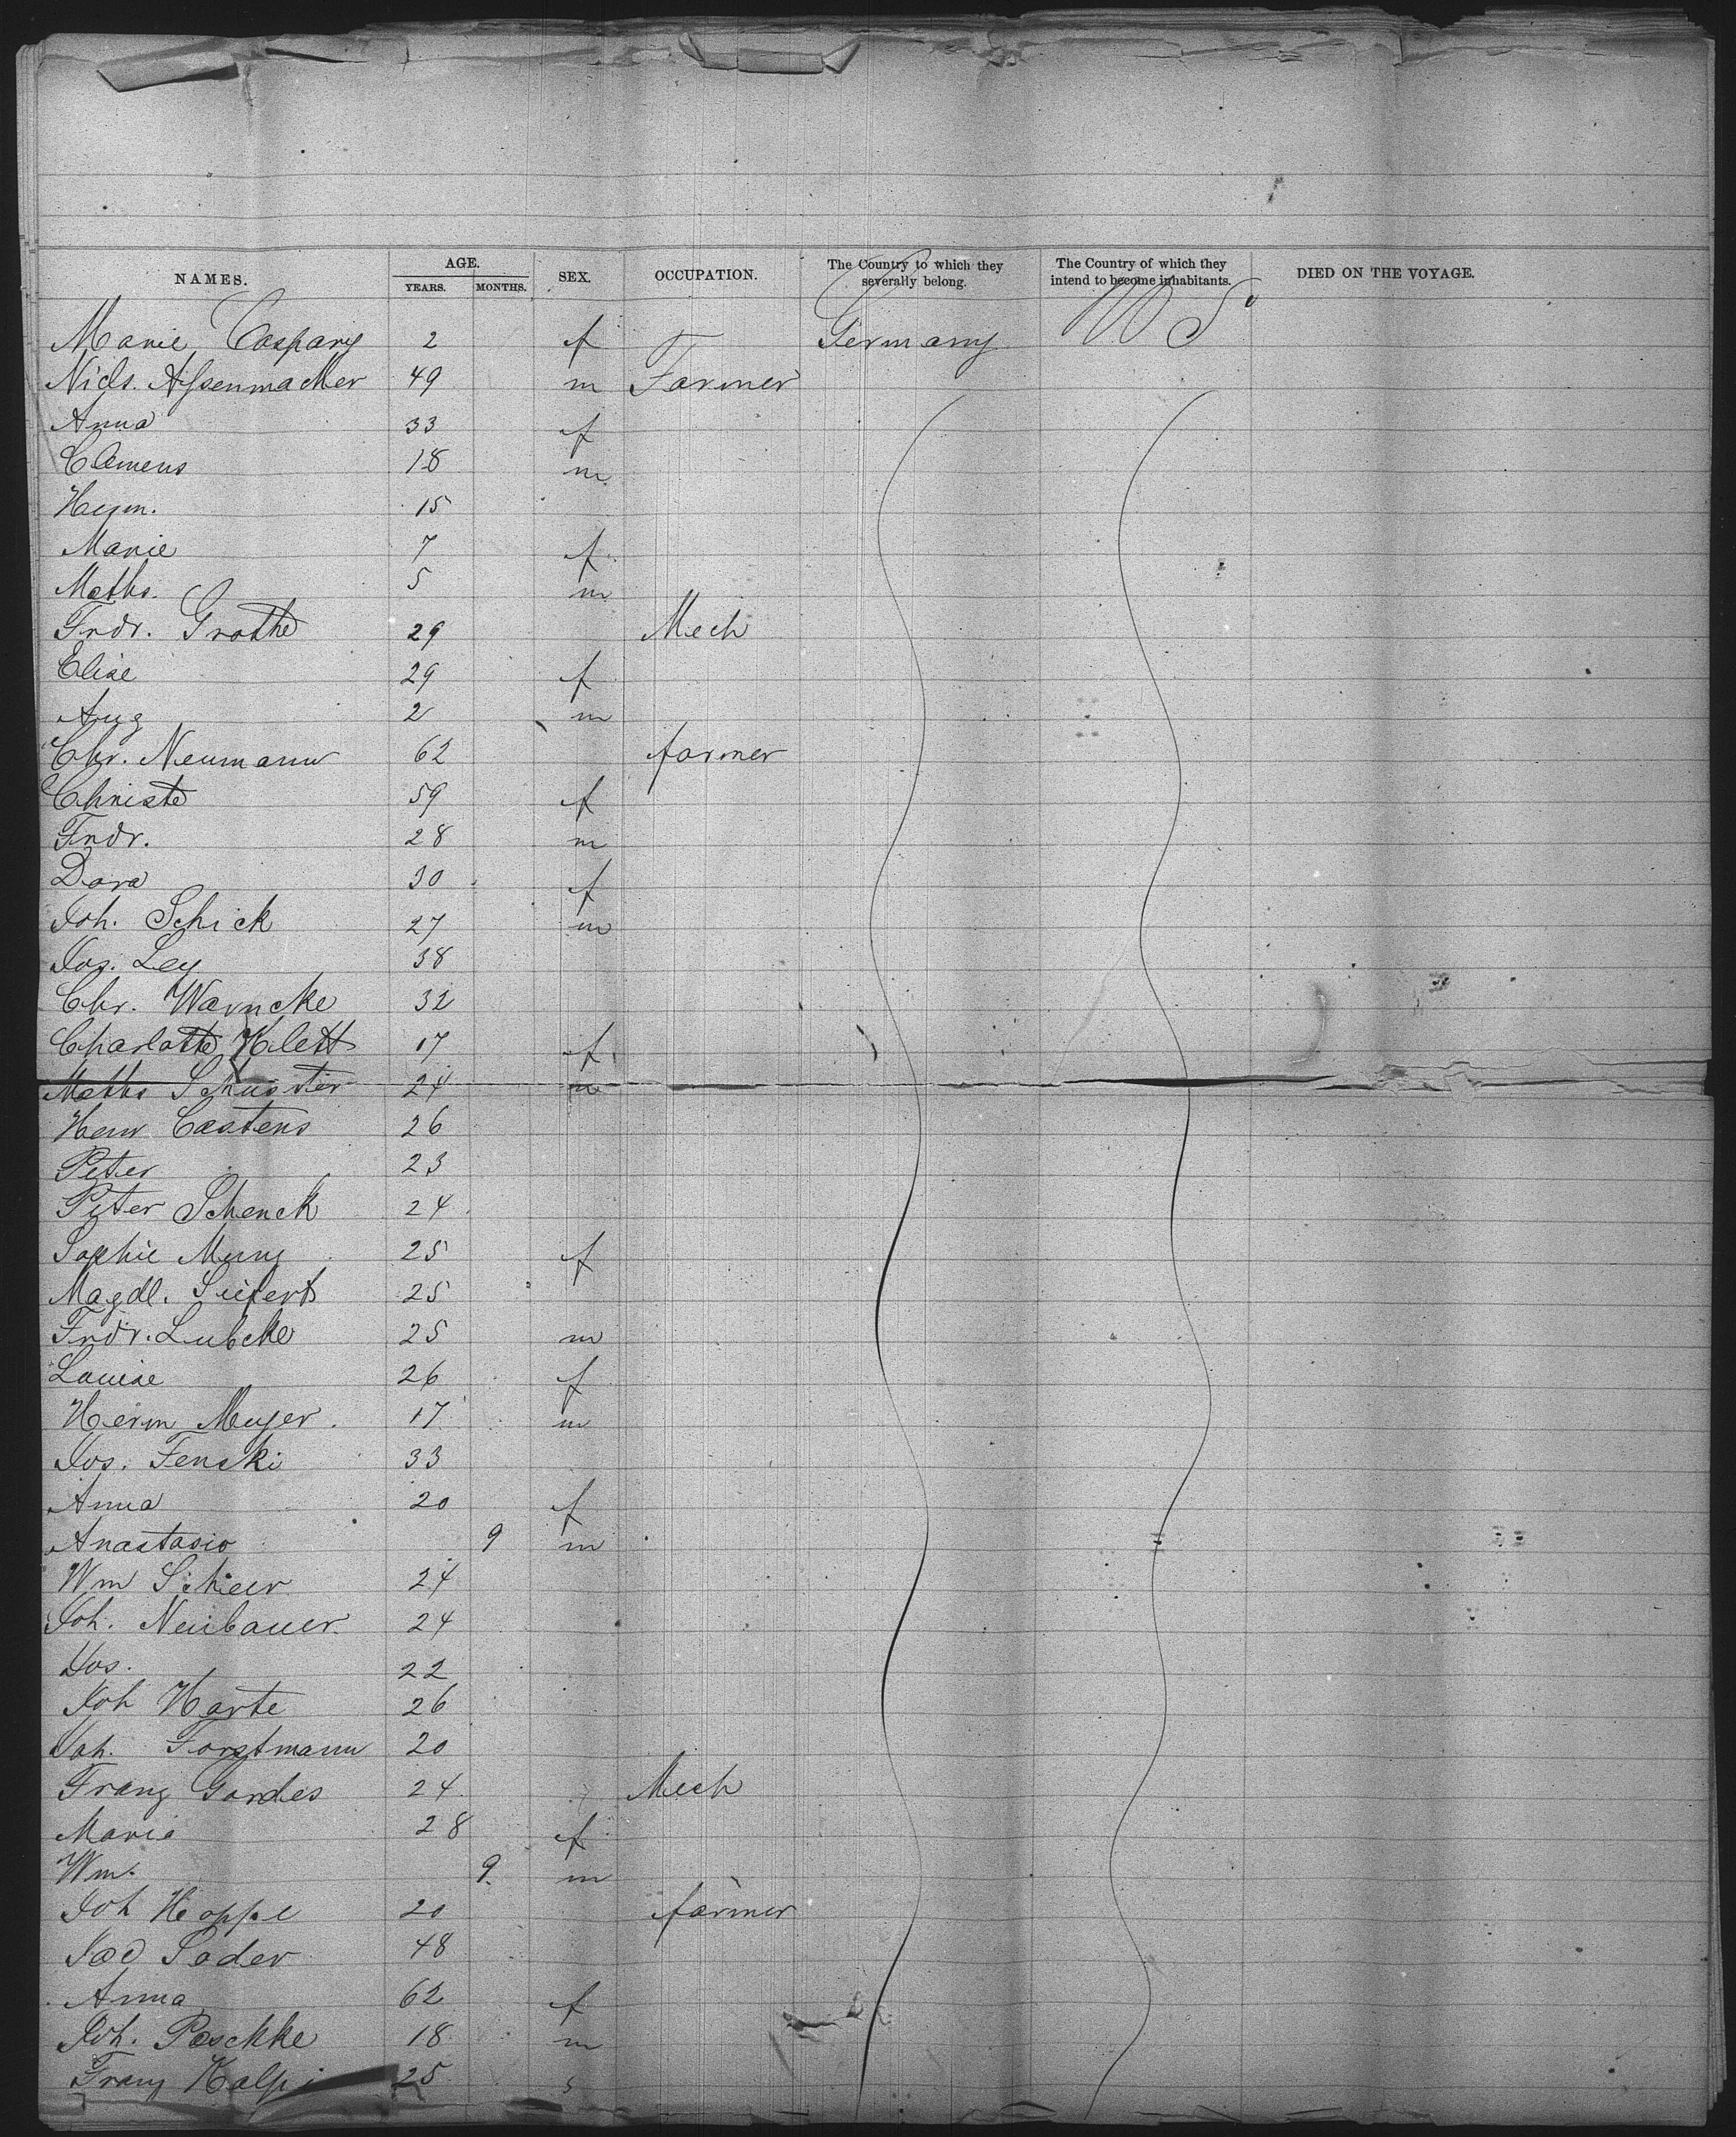 NAMES. AGE. YEARS. MONTHS. SEX. OCCUPATION. The Country to which they severally belong. The Country of which they intend to become inhabitants. DIED ON THE VOYAGE.
Marie Caspary 2 f Germany U S
Nicls. Assenmacher 49 m Farmer
Anna 33 f
Clemens 18 m
Heyn. 15
Marie 7 f
Maths. 5 m
Frdr. Grothe 29 Mech
Elise 29 f
Aug 2 m
Chr. Neumann 62 farmer
Christe 59 f
Frdr. 28 m
Dora 30 f
Joh. Schick 27 m
Jos. Ley 38
Chr. Warncke 32
Charlotte Klett 17 f
Maths Schuster 24 m
Henr Castens 26
Peter 23
Peter Schenck 24
Sophie 25 f
Magdl. Siefert 25
Frdr. Lubcke 25 m
Louise 26 f
Herm Meyer 17 m
Jos. Fenski 33
Anna 20 f
Anastasio 9 m
Wm Scheer 24
Joh. Neubauer 24
Jos. 22
Joh Harte 26
Joh. Forstmann 20
Franz Gordes 24 Mech
Maria 28 f
Wm. 9 m
Joh Hoppe 20 farmer
Jac Soder 48
Anna 62 f
Joh. Paschke 18 m
Franz 25